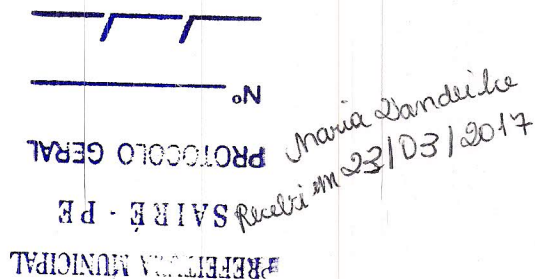 PREFEITURA MUNICIPAL
SAIRÉ - PE
PROTOCOLO GERAL
Nº
Maria Vandeilce
Recebi em 23/03/2017